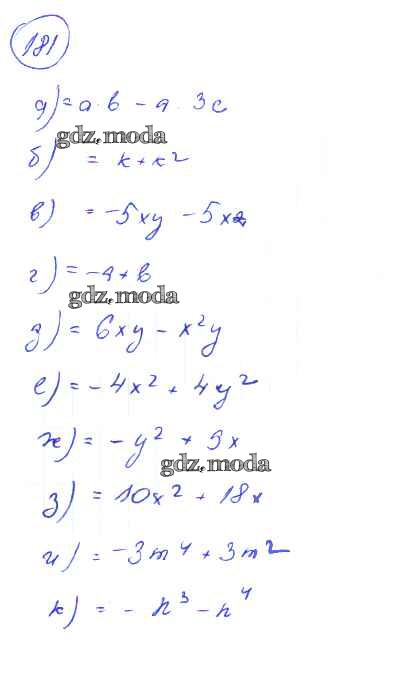 181
а) = a·b - a·3c
gdz.moda
б) = k + k²
в) = -5xy - 5x
г) = -a + b
gdz.moda
д) = 6xy - x²y
е) = -4x² + 4y²
ж) = -y² + 3x
gdz.moda
з) = 10x² + 18x
и) = -3m⁴ + 3m²
к) = - n³ - n⁴